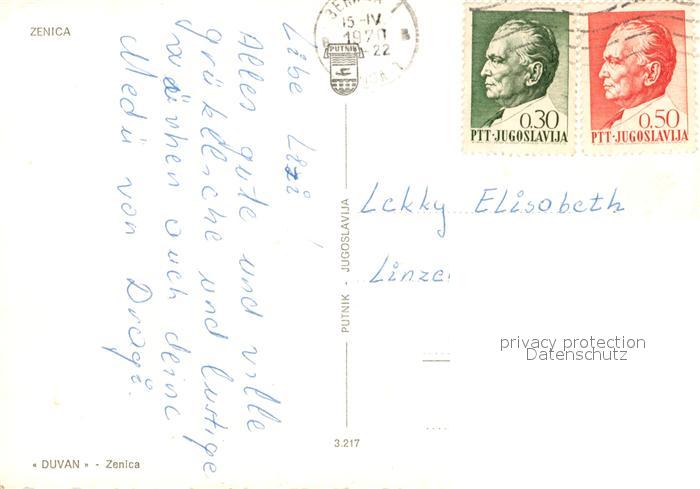 ZENICA
Libe Lizi!
Alles gute und ville
grükelsche und lustige
wünshen auch deine
Medi von Dragi.
« DUVAN » - Zenica
PUTNIK - JUGOSLAVIJA
3.217
15-IV
1970
22
PUTNIK
0.30
PTT·JUGOSLAVIJA
0.50
PTT·JUGOSLAVIJA
Lekky Elisabeth
Linze
privacy protection
Datenschutz